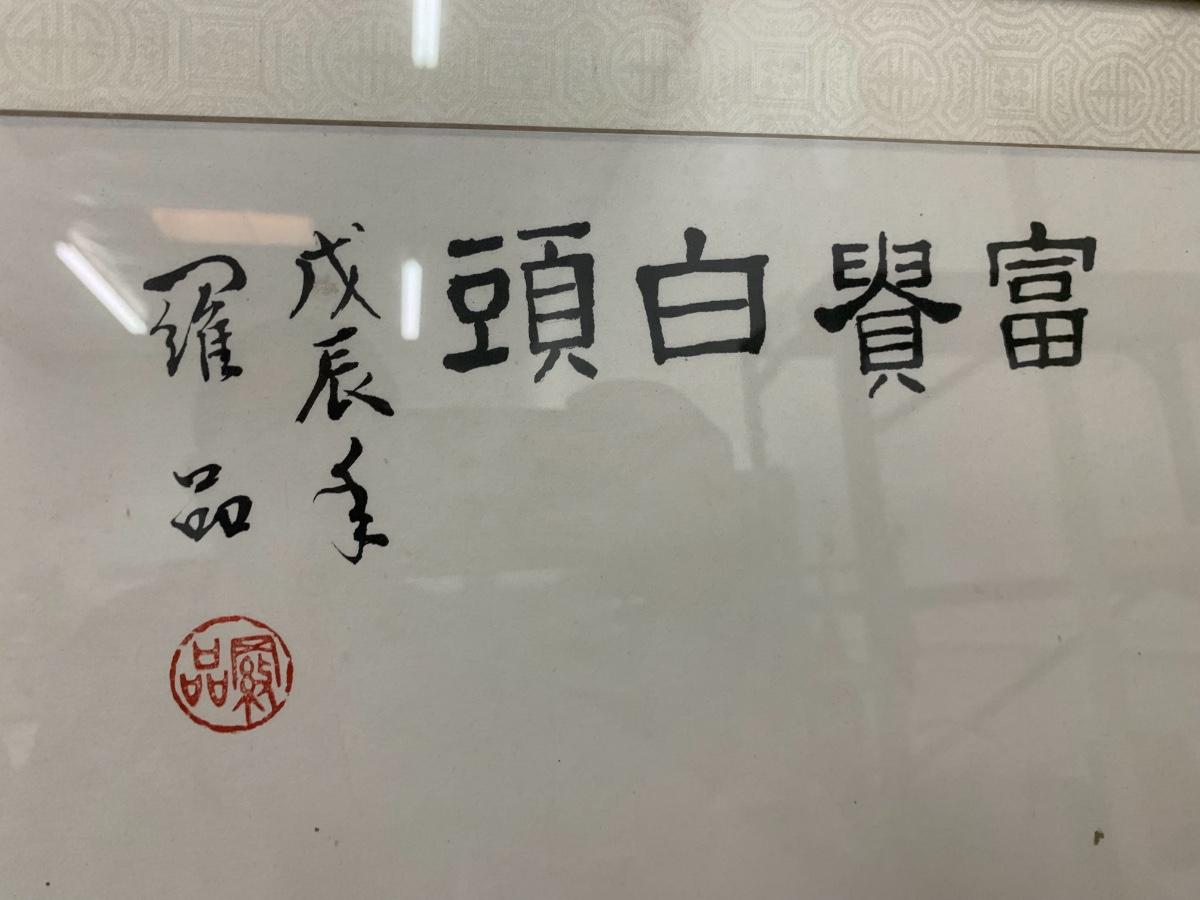 富貴白頭
戊辰年
羅品
羅品